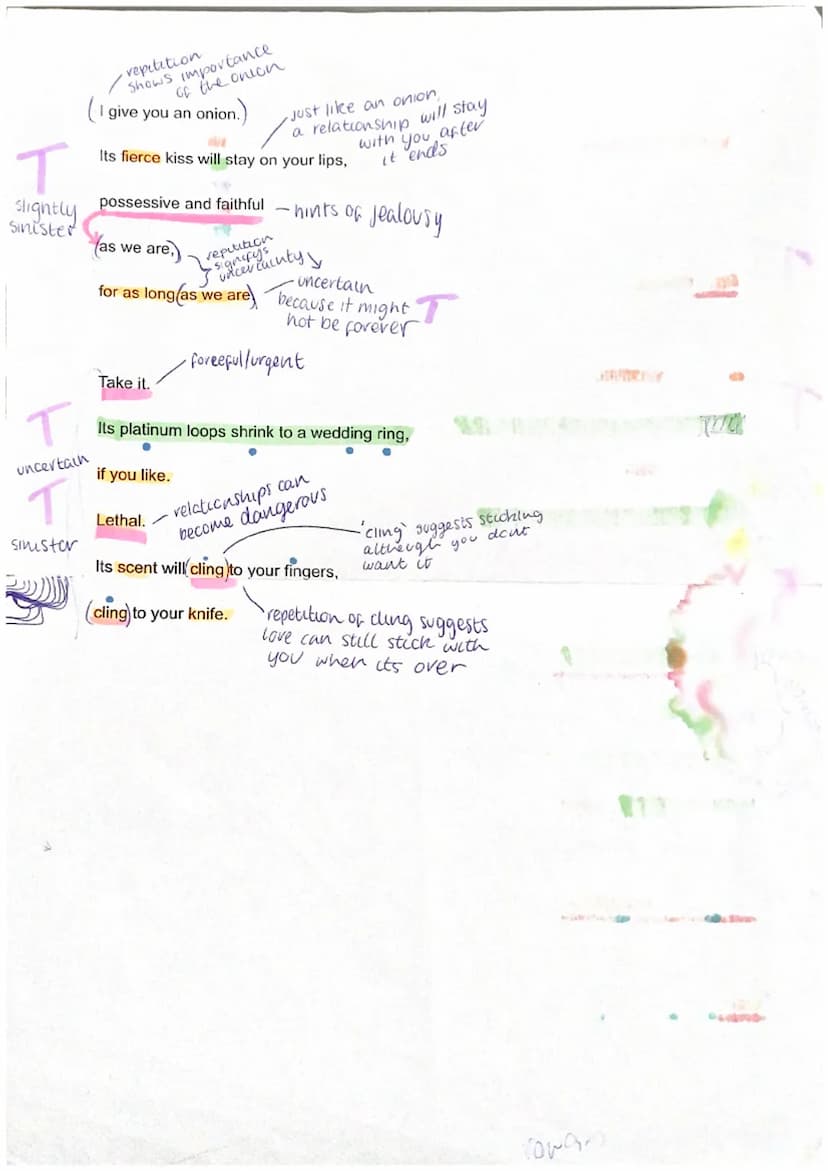 repitition
shows importance
of the onion
(I give you an onion.)
just like an onion,
a relationship will stay
with you after
it ends
T
Its fierce kiss will stay on your lips,
slightly
sinister
possessive and faithful
– hints of jealousy
(as we are,)
repitition
signifys
uncertainty
for as long (as we are)
uncertain
because it might
not be forever
T
Take it.
forceful/urgent
T
Its platinum loops shrink to a wedding ring,
uncertain
if you like.
T
Lethal.
relationships can
become dangerous
sinister
'cling' suggests sticking
although you dont
want it
Its scent will (cling) to your fingers,
(cling) to your knife.
repetition of cling suggests
love can still stick with
you when its over